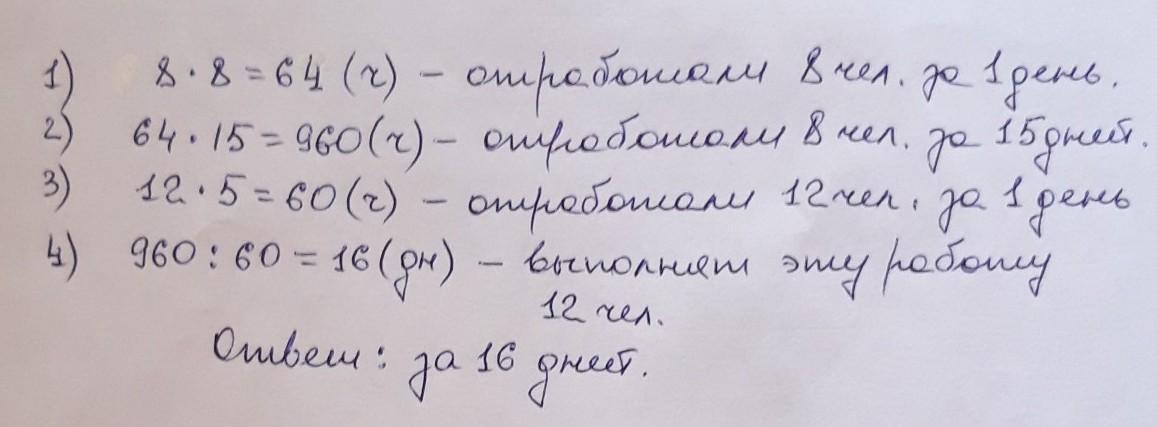 1) 8 · 8 = 64 (ч) – отработали 8 чел. за 1 день.
2) 64 · 15 = 960 (ч) – отработали 8 чел. за 15 дней.
3) 12 · 5 = 60 (ч) – отработали 12 чел. за 1 день
4) 960 : 60 = 16 (дн) – выполнят эту работу
12 чел.
Ответ: за 16 дней.